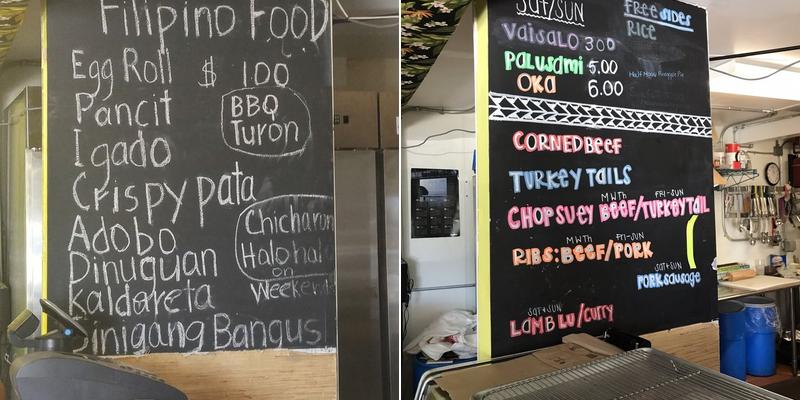 Filipino FooD
Egg Roll $ 1.00
Pancit
BBQ
Turon
Igado
Crispy pata
Adobo
Chicharon
Halohalo
on
Weekends
Dinuguan
Kaldereta
Sinigang Bangus
SAT/SUN
VaiSALO 300
PALUSAmi 5.00
OKA 6.00
FREE SIDES
RICE
Half Moon Pineapple Pie
CORNED BEEF
TURKEY TAILS
M W Th FRI-SUN
CHOPSUEY BEEF/TURKEY TAIL
M W Th FRI-SUN
RIBS: BEEF/PORK
SAT+SUN
PORK SAUSAGE
SAT+SUN
LAMB LU/CURRY